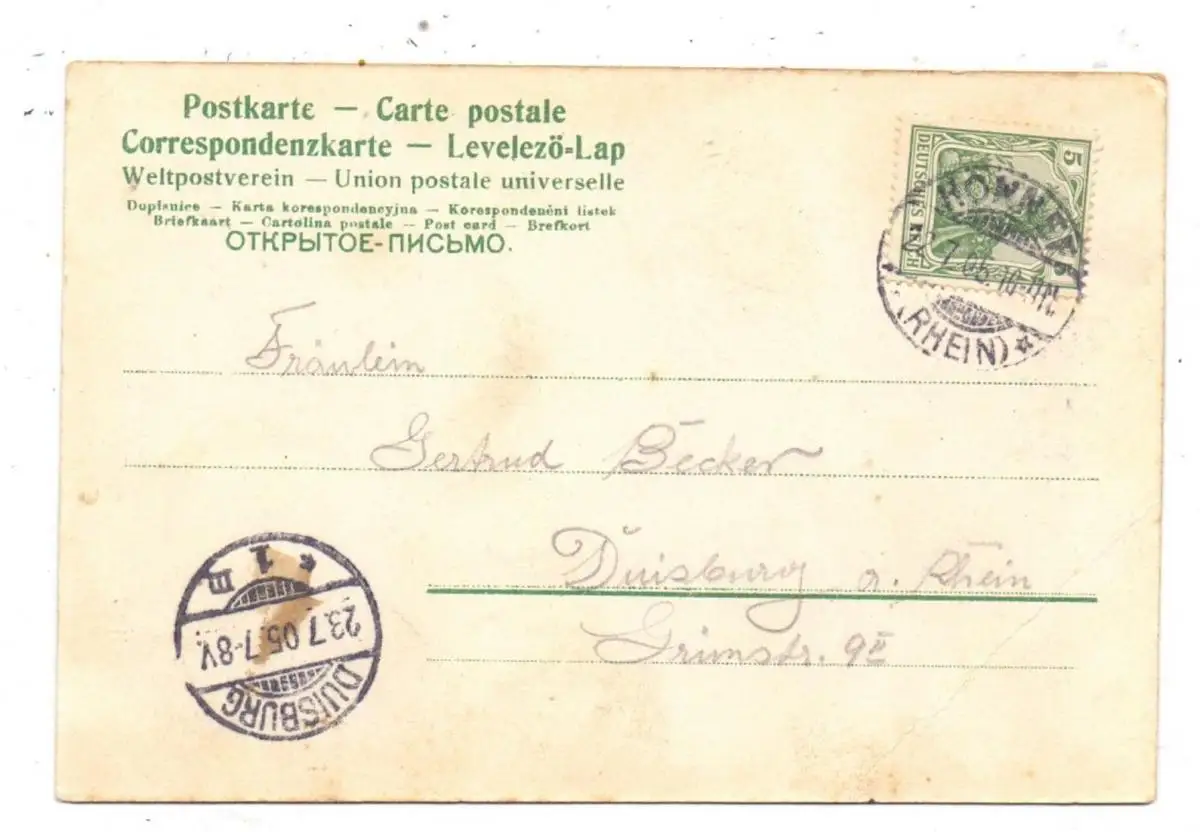 Postkarte — Carte postale
Correspondenzkarte — Levelező-Lap
Weltpostverein — Union postale universelle
Dopisnice — Karta korespondencyjna — Korespondenční lístek
Briefkaart — Cartolina postale — Post card — Brefkort
ОТКРЫТОЕ-ПИСЬМО.
5
DEUTSCHES REICH
HONNEF
7.05.
(RHEIN)
Fräulein
Gertrud Becker
Duisburg a. Rhein
Grünstr. 9II
DUISBURG
23.7.05.7-8V.
* 1